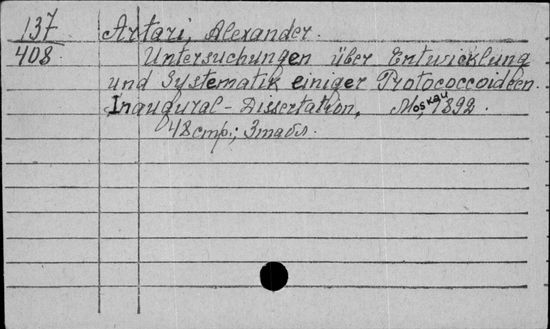 137 Artari, Alexander.
408. Untersuchungen über Entwicklung
und Systematik einiger Protococcoideen.
Inaugural-Dissertation, Moskau, 1892.
48 стр.; 3 табл.